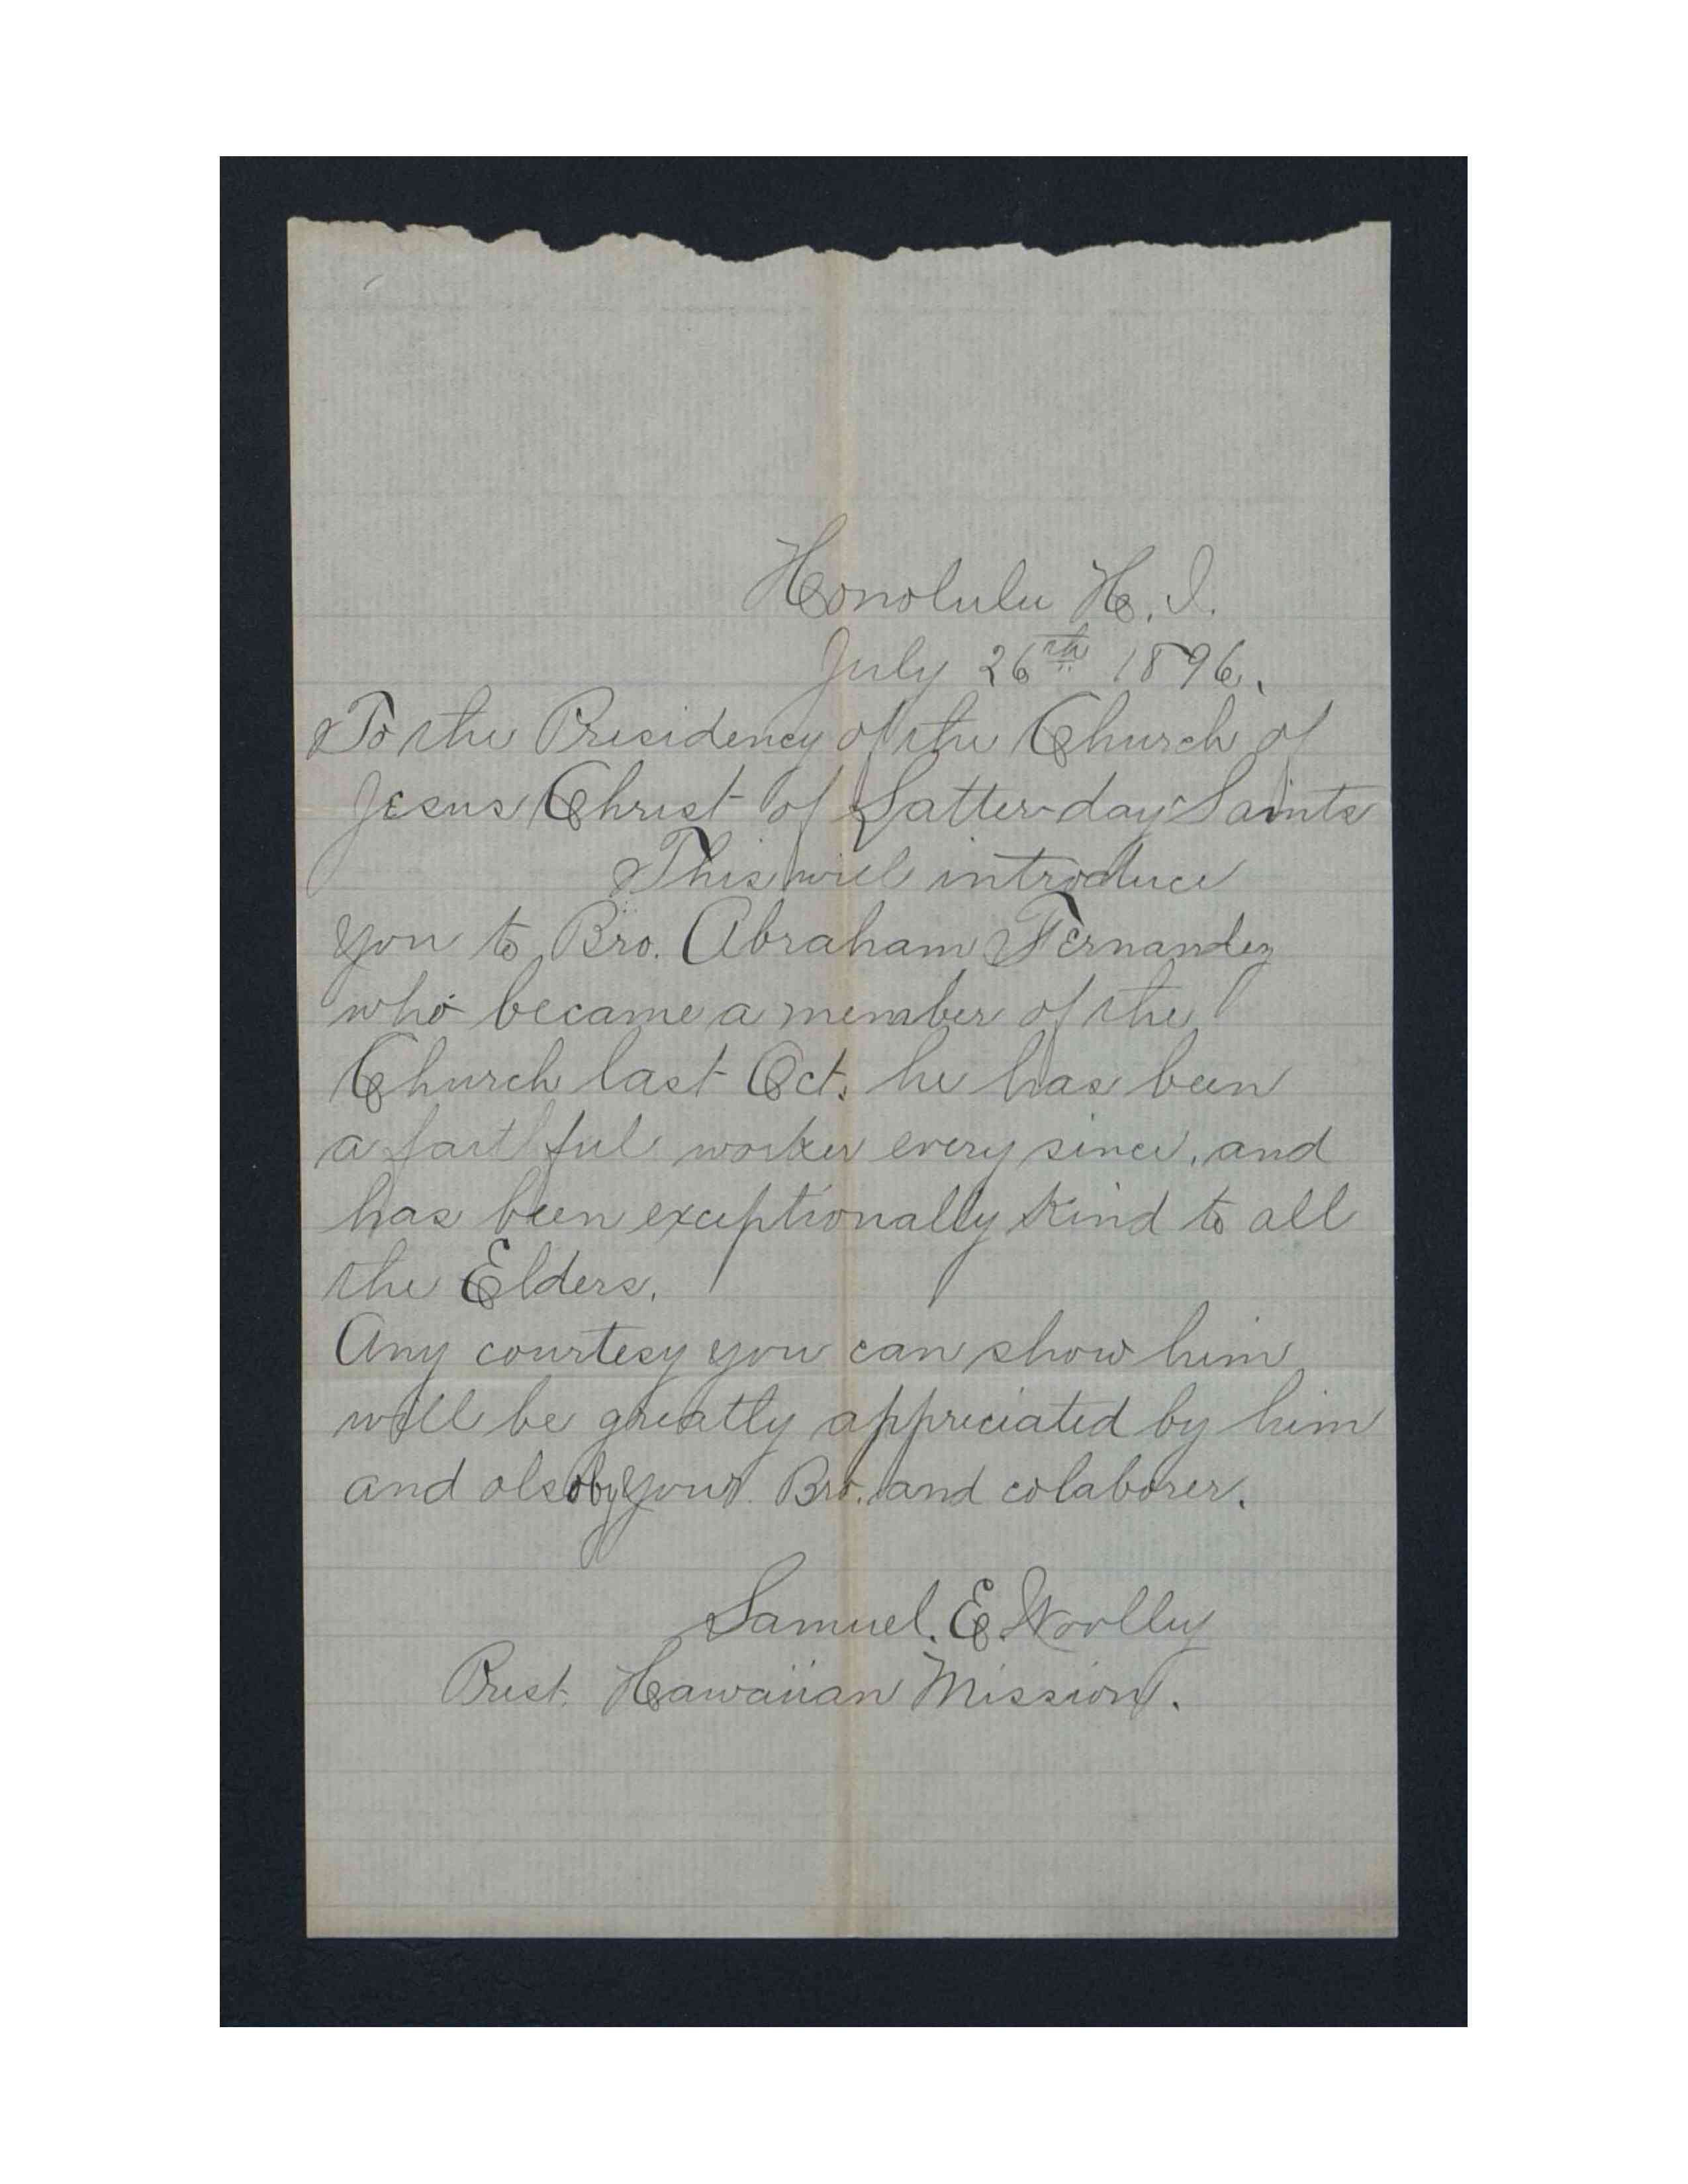 Honolulu H. I.
July 26th 1896.
To the Presidency of the Church of
Jesus Christ of Latter-day Saints
This will introduce
you to Bro. Abraham Fernandez
who became a member of the
Church last Oct. he has been
a faitful worker every since, and
has been exceptionally kind to all
the Elders.
Any courtesy you can show him
will be greatly appreciated by him
and also by your Bro. and colaborer.
Samuel. E. Woolley
Prest. Hawaiian Mission.